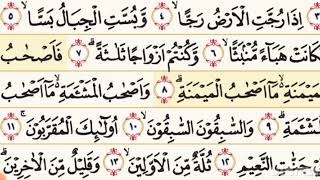 ٣ اِذَا رُجَّتِ الْاَرْضُ رَجًّاۙ ٤ وَّبُسَّتِ الْجِبَالُ بَسًّاۙ ٥
كَانَتْ هَبَاۤءً مُّنْۢبَثًّاۙ ٦ وَّكُنْتُمْ اَزْوَاجًا ثَلٰثَةًۗ ٧ فَاَصْحٰبُ
مَيْمَنَةِ ەۙ مَآ اَصْحٰبُ الْمَيْمَنَةِۗ ٨ وَاَصْحٰبُ الْمَشْـَٔمَةِ ەۙ مَآ اَصْحٰبُ
شْـَٔمَةِۗ ٩ وَالسّٰبِقُوْنَ السّٰبِقُوْنَۙ ١٠ اُولٰۤىِٕكَ الْمُقَرَّبُوْنَۚ ١١
جَنّٰتِ النَّعِيْمِ ١٢ ثُلَّةٌ مِّنَ الْاَوَّلِيْنَۙ ١٣ وَقَلِيْلٌ مِّنَ الْاٰخِرِيْنَۗ